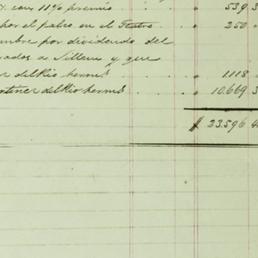 con 11% premio " 539 3
por el palco en el Teatro " 250 "
mbre por dividendo del
ador a Villena y que
r del Rio herms " 1118 3
ntener del Rio herms " 10.669 3
$ 23.596 4